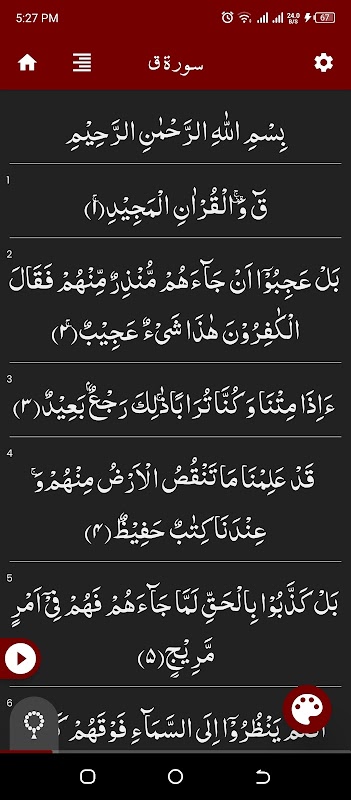 5:27 PM
24.0 B/S 67
سورة ق
بِسْمِ اللّٰهِ الرَّحْمٰنِ الرَّحِيْمِ
1
قٓ ۚ وَالْقُرْاٰنِ الْمَجِيْدِ(۱)
2
بَلْ عَجِبُوْۤا اَنْ جَآءَهُمْ مُّنْذِرٌ مِّنْهُمْ فَقَالَ
الْكٰفِرُوْنَ هٰذَا شَیْءٌ عَجِيْبٌ(۲)
3
ءَاِذَا مِتْنَا وَ كُنَّا تُرَابًا ۚ ذٰلِكَ رَجْعٌۢ بَعِيْدٌ(۳)
4
قَدْ عَلِمْنَا مَا تَنْقُصُ الْاَرْضُ مِنْهُمْ ۚ وَ
عِنْدَنَا كِتٰبٌ حَفِيْظٌ(۴)
5
بَلْ كَذَّبُوْا بِالْحَقِّ لَمَّا جَآءَهُمْ فَهُمْ فِیْۤ اَمْرٍ
مَّرِيْجٍ(۵)
6
يَنْظُرُوْۤا اِلَى السَّمَآءِ فَوْقَهُمْ